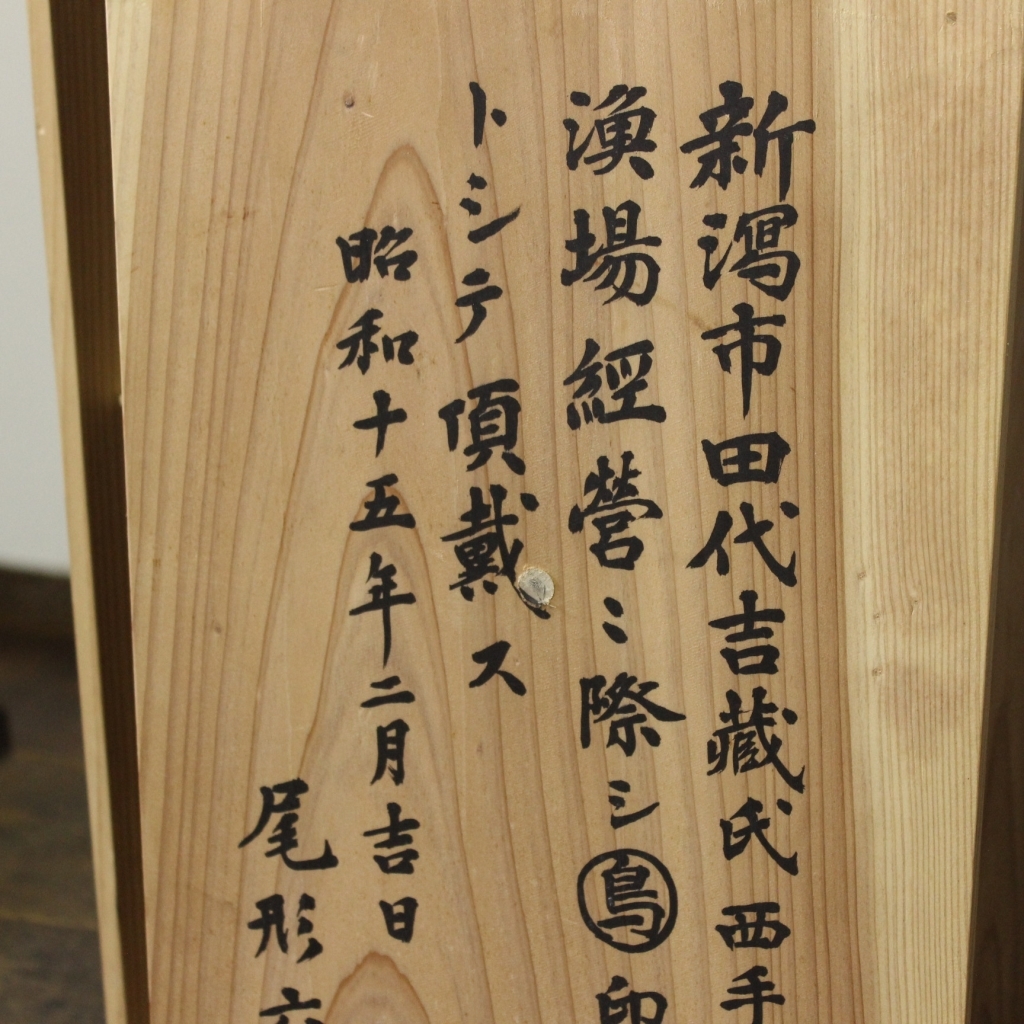 新潟市田代吉藏氏西手
漁場經營ニ際シ鳥印
トシテ頂戴ス
昭和十五年二月吉日
尾形六